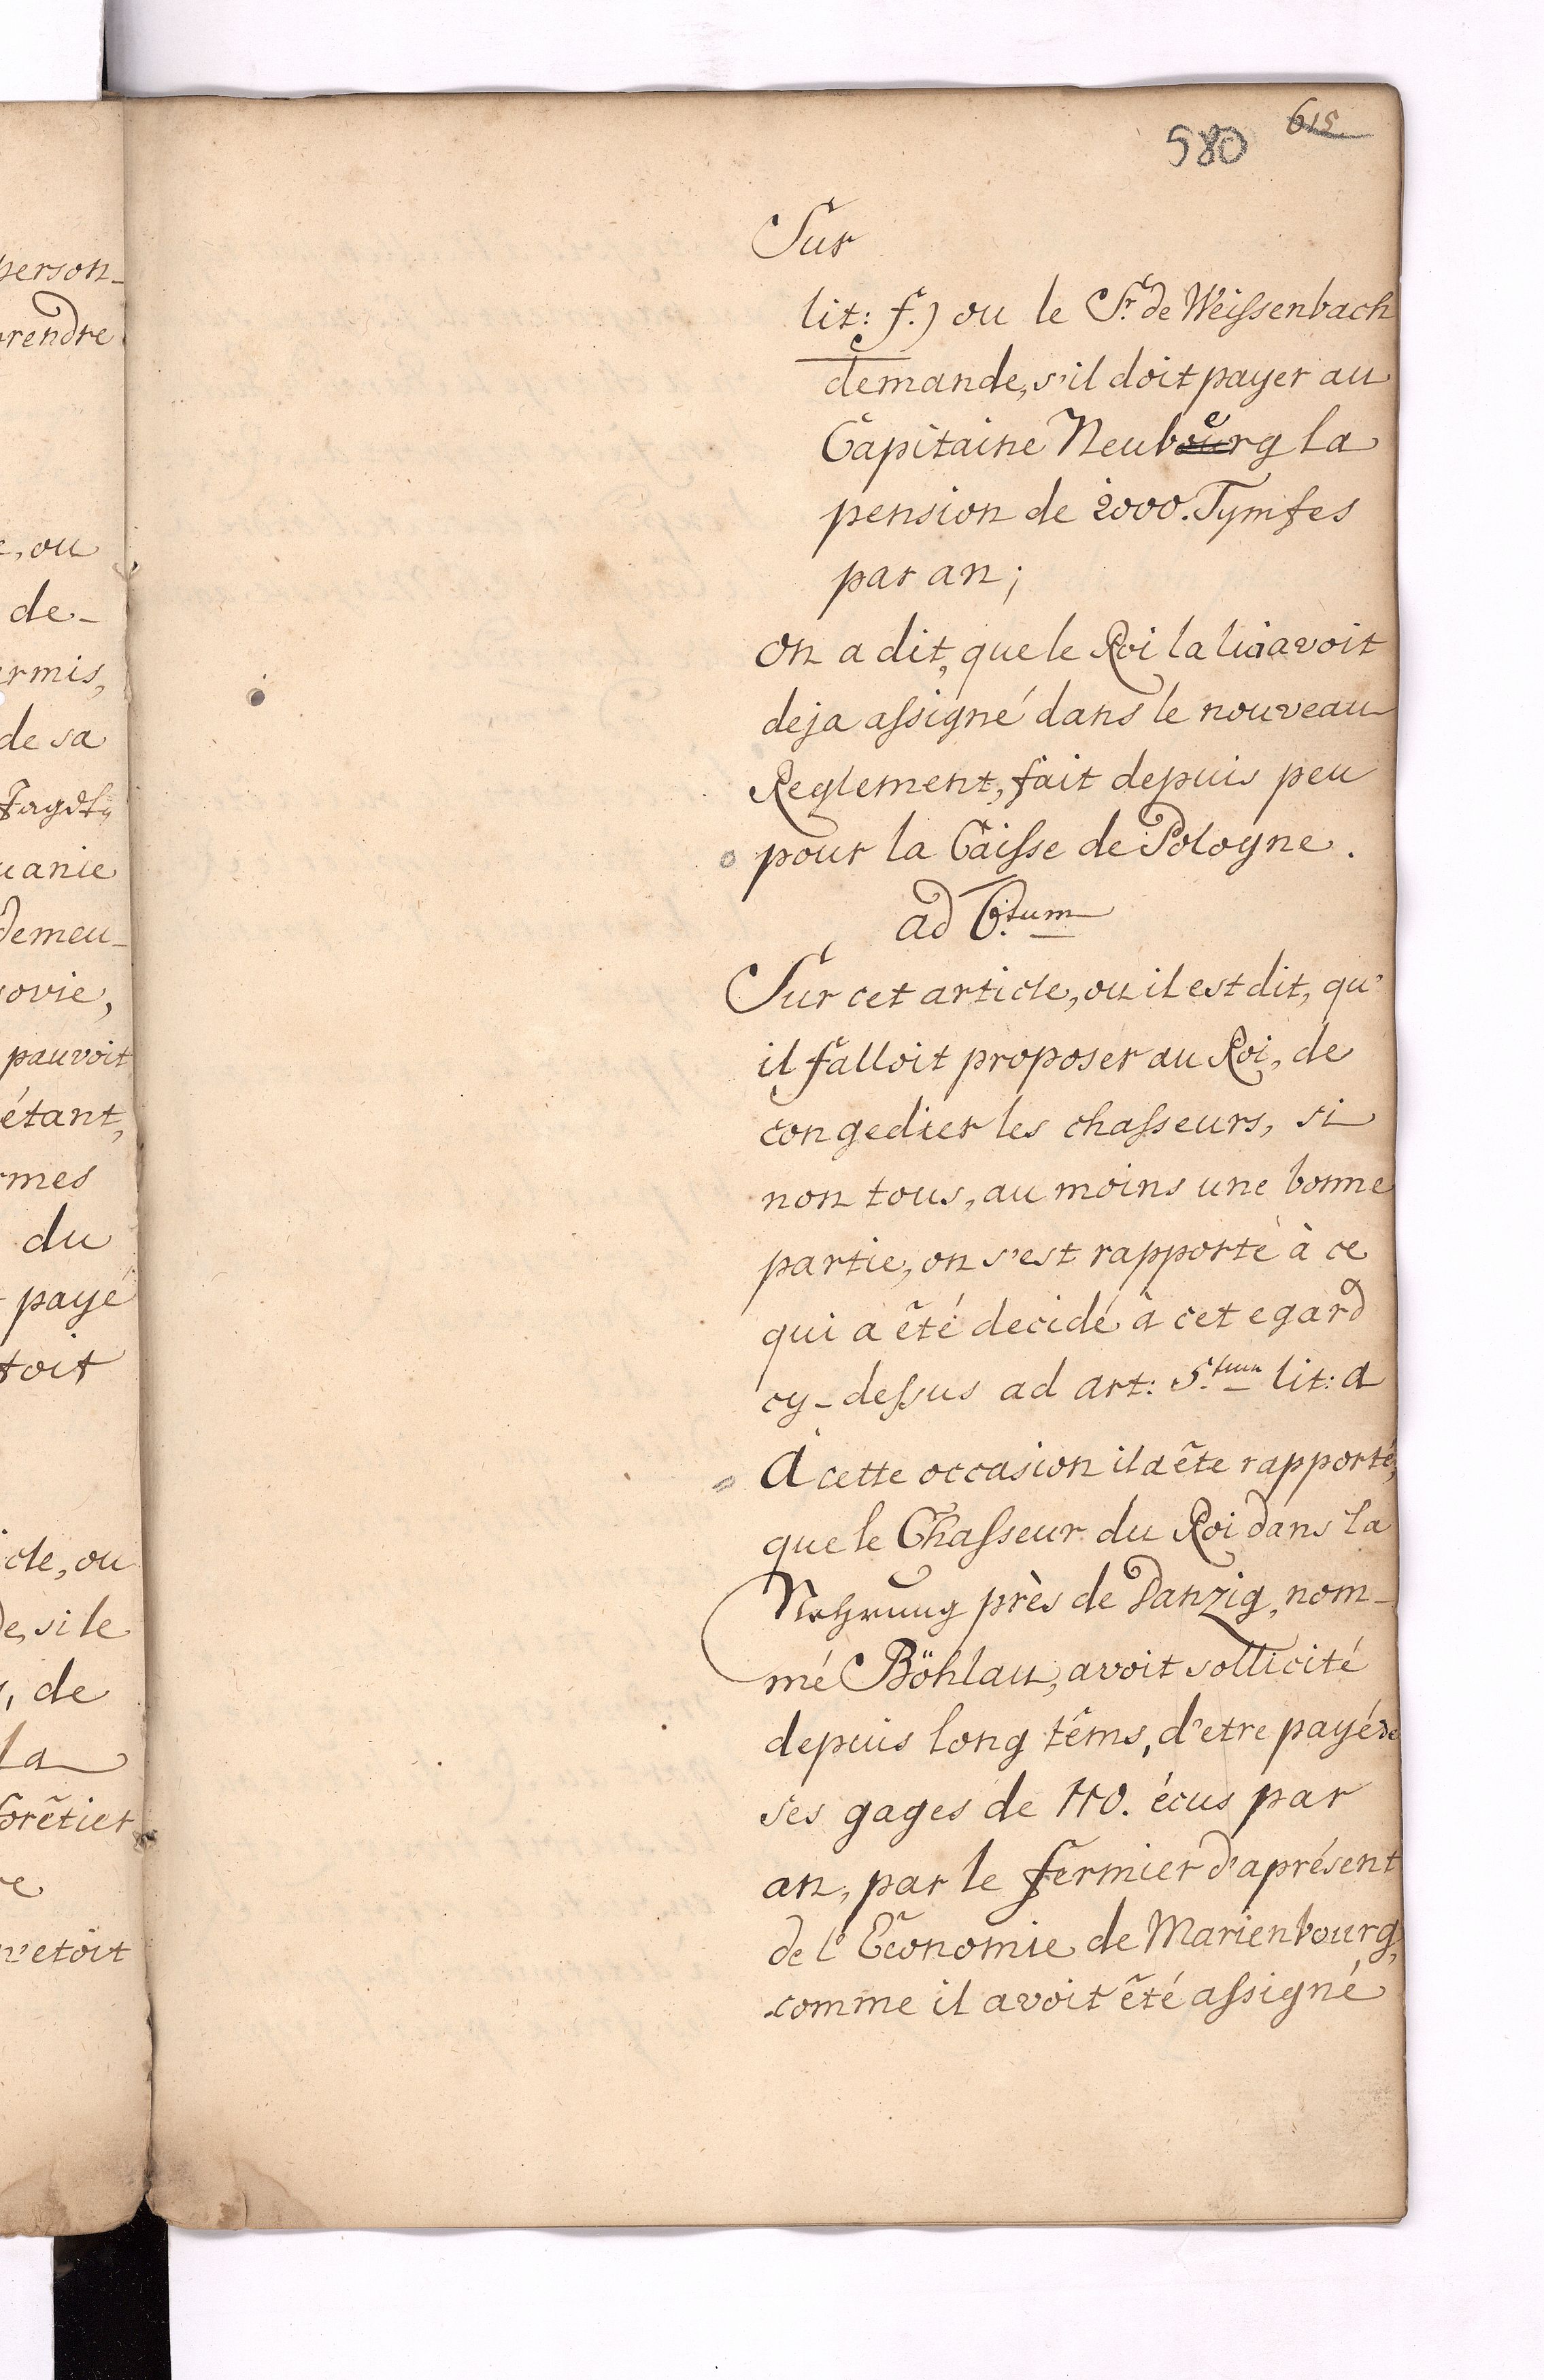 person-
prendre
e, ou
de-
ermis,
de sa
uanie
demeu-
sovie,
pauvoit
étant,
rmes
du
payé
toit
icle, ou
de, si le
, de
la
forêtier
re
n'etoit
615
580
Sur
lit: f.) ou le Sr. de Weissenbach
demande, s'il doit payer au
Capitaine Neubourg e la
pension de 2000. Tymfes
par an;
On a dit, que le Roi la lui avoit
deja assigné dans le nouveau
Reglement, fait depuis peu
pour la Caisse de Pologne.
ad 6.tum
Sur cet article, ou il est dit, qu'
il falloit proposer au Roi, de
congedier les chasseurs, si
non tous, au moins une bonne
partie, on s'est rapporté à ce
qui a êté decidé à cet egard
cy-dessus ad art: 5.tum lit: a
A cette occasion il a ête rapporté,
que le Chasseur du Roi dans la
Nehrung près de Danzig, nom-
mé Böhlau, avoit sollicité
depuis long têms, d'etre payé de
ses gages de 110. écus par
an, par le fermier d'aprésent
de l'Economie de Marienbourg,
comme il avoit êté assigné